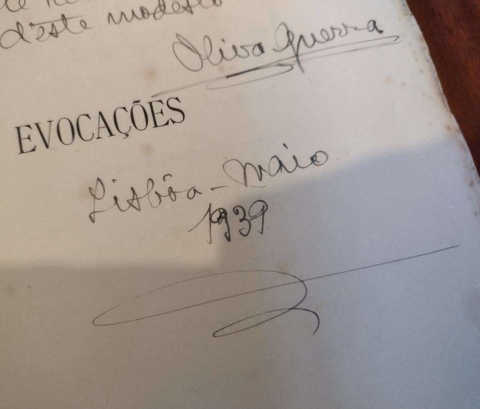 d'este modesto
Oliva Guerra
EVOCAÇÕES
Lisbôa - Maio
1939